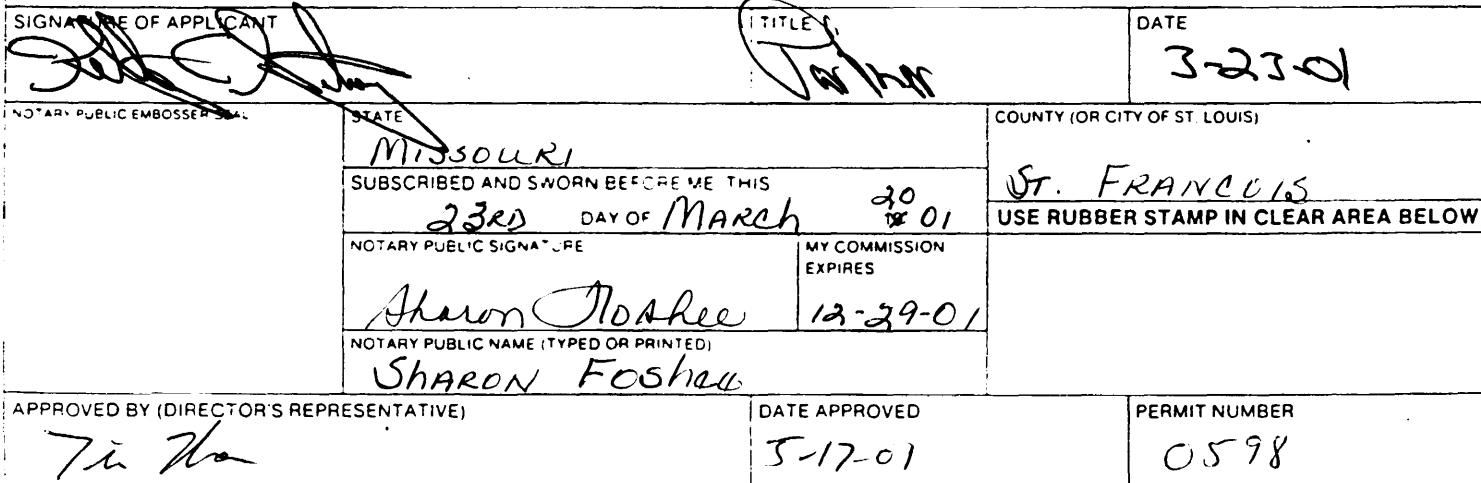 SIGNATURE OF APPLICANT
TITLE
Partner
DATE
3-23-01
NOTARY PUBLIC EMBOSSER SEAL
STATE
MISSOURI
COUNTY (OR CITY OF ST. LOUIS)
ST. FRANCOIS
SUBSCRIBED AND SWORN BEFORE ME THIS
23RD DAY OF MARCH 20 01
USE RUBBER STAMP IN CLEAR AREA BELOW
NOTARY PUBLIC SIGNATURE
Sharon Foshee
MY COMMISSION
EXPIRES
12-29-01
NOTARY PUBLIC NAME (TYPED OR PRINTED)
SHARON FOSHEE
APPROVED BY (DIRECTOR'S REPRESENTATIVE)
DATE APPROVED
5-17-01
PERMIT NUMBER
0598